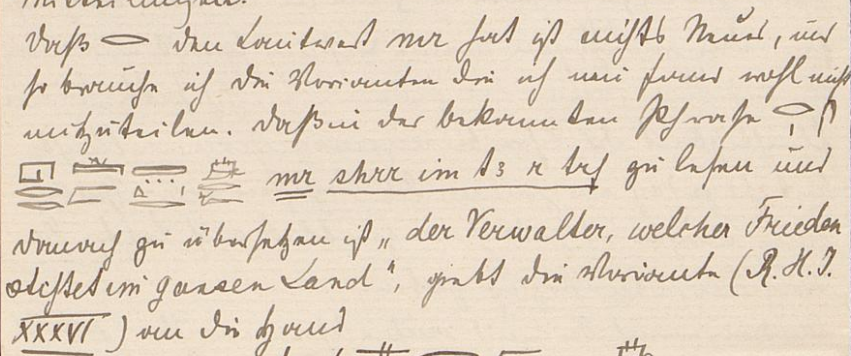 mitteilungen.
Daß 𓂋 den Lautwert mr hat ist nichts Neues, und
so brauche ich die Varianten die ich neu fand wohl nicht
mitzuteilen. Daß in der bekannten Phrase
mr shrr im t3 r drf zu lesen und
danach zu übersetzen ist „der Verwalter, welcher Frieden
stiftet im ganzen Land“, giebt die Variante (R.H.I.
XXXVI) an die Hand